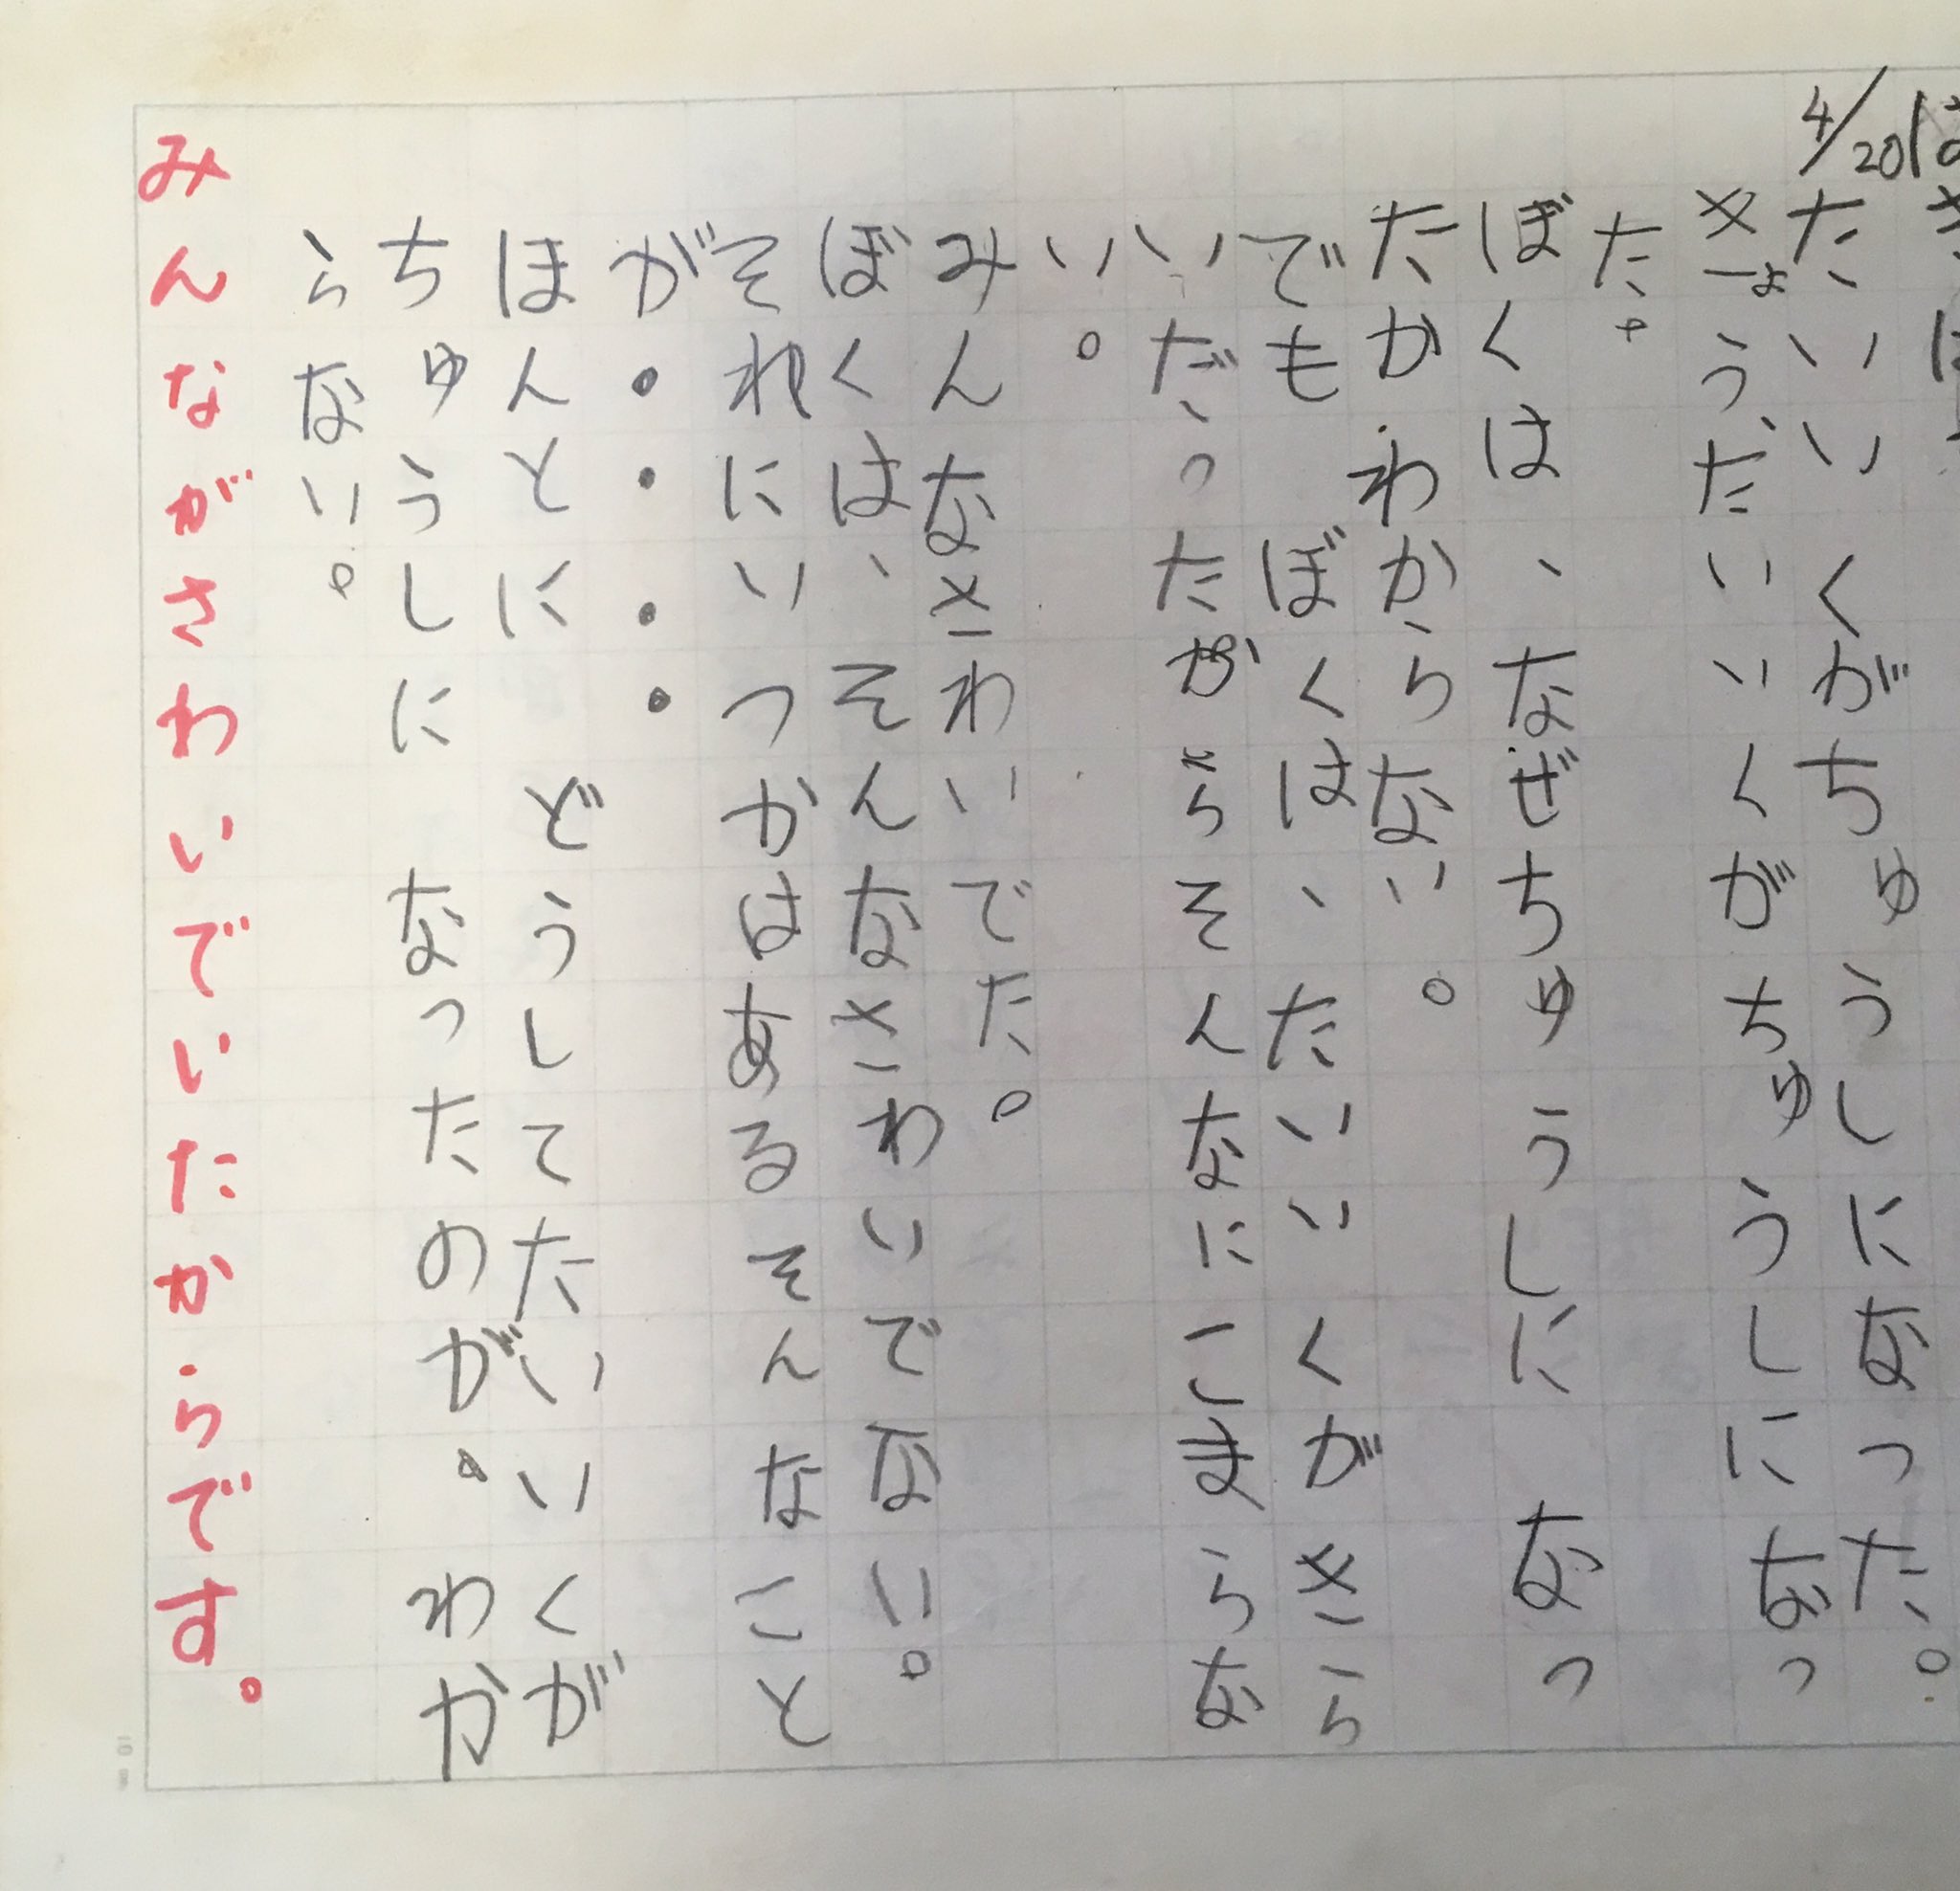 4/20
たいいくがちゅうしになった。
きょう、たいいくがちゅうしになっ
た。
ぼくは、なぜちゅうしになっ
たかわからない。
でもぼくは、たいいくがきら
いだったからそんなにこまらな
い。
みんなさわいでた。
ぼくは、そんなさわいでない。
それにいつかはあるそんなこと
が・・・・
ほんとにどうしてたいいくが
ちゅうしになったのが・わか
らない。
みんながさわいでいたからです。